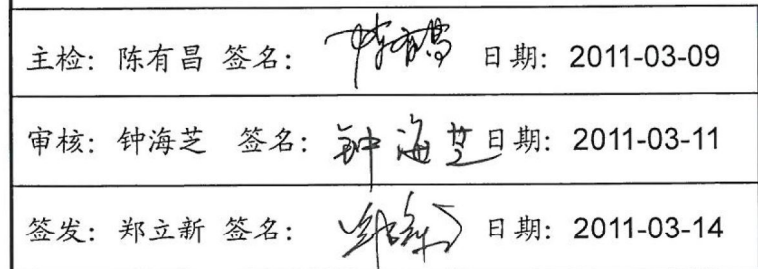 主检：陈有昌 签名：陈有昌 日期：2011-03-09
审核：钟海芝 签名：钟海芝 日期：2011-03-11
签发：郑立新 签名：郑立新 日期：2011-03-14